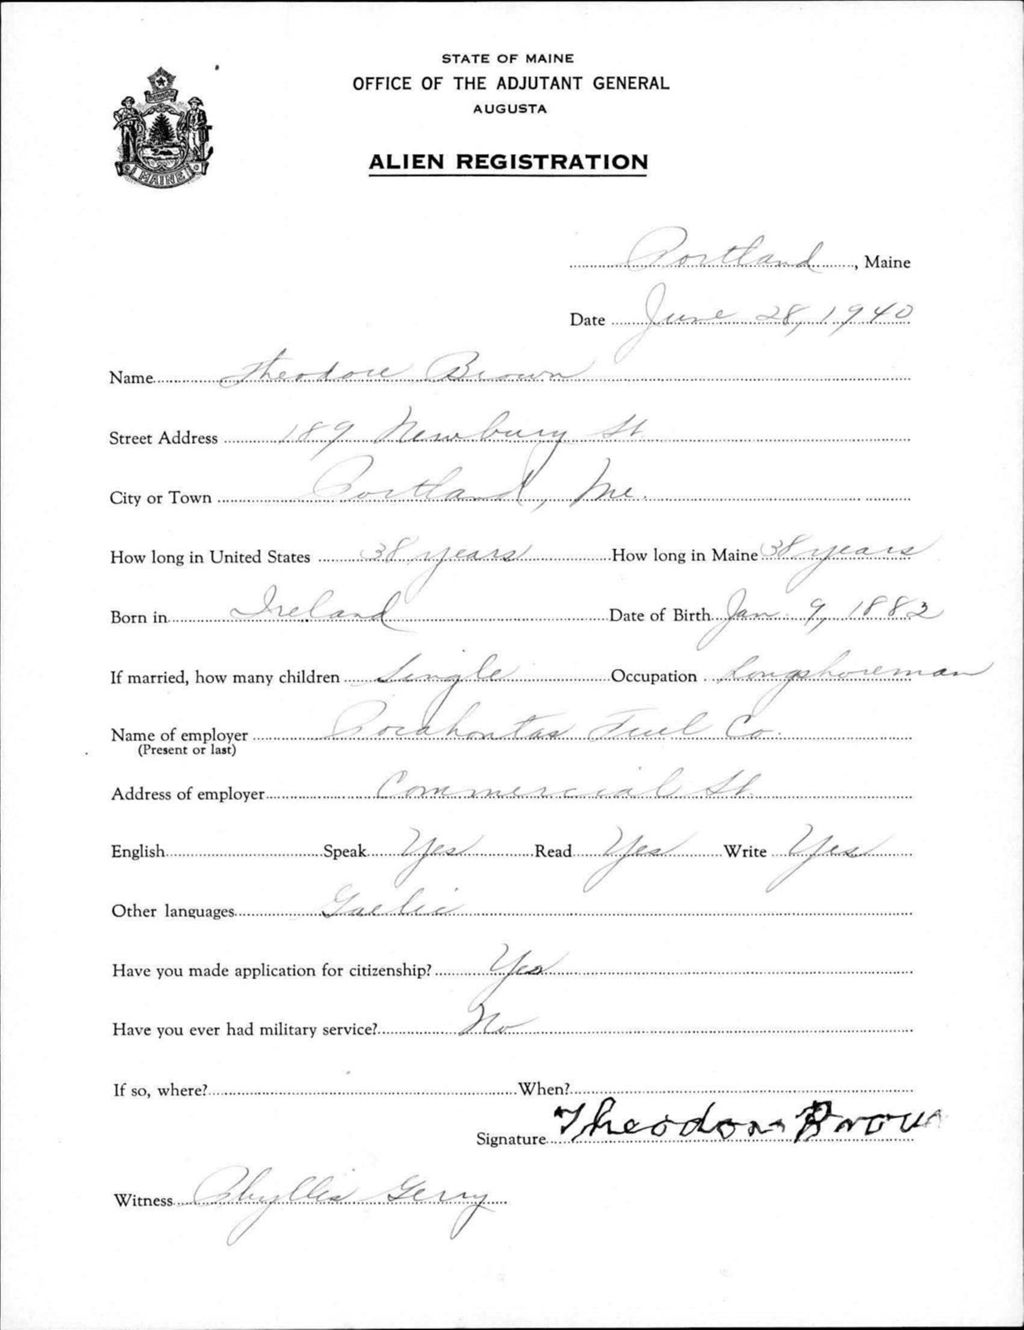 STATE OF MAINE
OFFICE OF THE ADJUTANT GENERAL
AUGUSTA
MAINE
ALIEN REGISTRATION
Portland, Maine
Date June 28, 1940
Name Theodore Brown
Street Address 189 Newbury St
City or Town Portland, Me.
How long in United States 38 years How long in Maine 38 years
Born in Ireland Date of Birth Jan. 9, 1882
If married, how many children Single Occupation Longshoreman
Name of employer Pocahontas Fuel Co.
(Present or last)
Address of employer Commercial St.
English Speak Yes Read Yes Write Yes
Other languages Gaelic
Have you made application for citizenship? Yes
Have you ever had military service? No
If so, where? When?
Signature Theodore Brown
Witness Phyllis Gerry